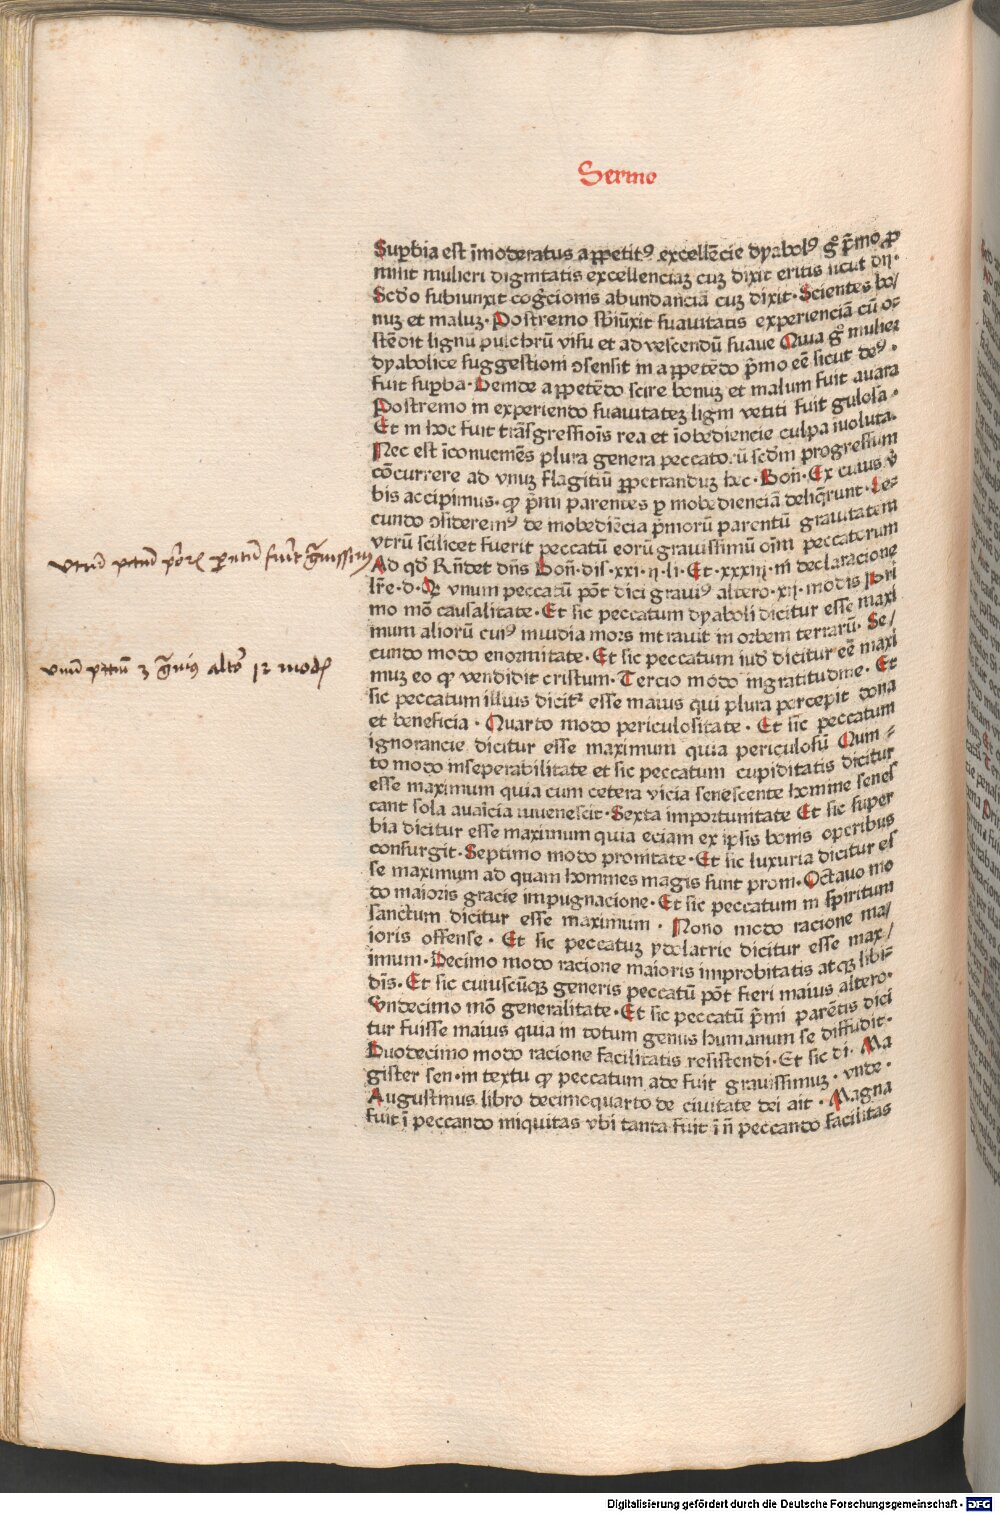 Sermo
Suꝑbia est īmoderatus appetitꝰ excellēcie dyabolꝰ gͦ p̄mo ꝓ
misit mulieri dignitatis excellenciaꝫ cuꝫ dixit eritis sicut dii·
Scd̄o subiunxit coḡcionis abundanciā cuꝫ dixit· Scientes bo/
nuꝫ et maluꝫ· Postremo sbiūxit suauitatis experienciā cū os
stēdit lignū pulchrū visu et ad vescendū suaue Quia gͦ mulier
dyabolice suggestioni ↄsensit in appetēdo p̄mo eē sicut deꝰ·
fuit suꝑba· Deinde appetēdo scire bonuꝫ et malum fuit auara
Postremo in experiendo suauitateꝫ ligni vetiti fuit gulosa·
Et in hoc fuit trāsgressiōis rea et īobediencie culpa īuoluta·
Nec est īconueniēs plura genera peccatorū scdm̄ progressum
cōcurrere ad vnuꝫ flagitiū ꝑpetranduꝫ hec· Bon̄· Ex cuius v̄
bis accipimus· ꝙ p̄mi parentes ꝑ inobedienciā deliq̄runt· Se⸗
cundo ↄsideremꝰ de inobediēcia p̄morū parentū grauitatem
vtrū scilicet fuerit peccatū eorū grauissimū oīm peccatorum
Ad qd̄ Rn̄det dn̄s Bon̄· dis· xxi· ij· li· Et· xxxiij· in declaracione
lr̄e· d· Q vnum peccatū pōt dici grauiꝰ altero· xij· modis Pri
mo mō causalitate· Et sic peccatum dyaboli dicitur esse maxi
mum aliorū cuiꝰ inuidia mors intrauit in orbem terrarū· Se/
cundo modo enormitate· Et sic peccatum iud̄ dicitur eē maxi
muꝫ eo ꝙ vendidit cristum· Tercio modo ingratitudine· Et
sic peccatum illius dicitᷣ esse maius qui plura percepit dona
et beneficia· Quarto modo periculositate· Et sic peccatum
ignorancie dicitur esse maximum quia periculosū Quin⸗
to modo inseperabilitate et sic peccatum cupiditatis dicitur
esse maximum quia cum cetera vicia senescente homine senes
cant sola auaīcia iuuenescit· Sexta importunitate Et sic super
bia dicitur esse maximum quia eciam ex ipsis bonis operibus
consurgit· Septimo modo pronitate· Et sic luxuria dicitur es
se maximum ad quam homines magis sunt proni· Octauo mo
do maioris gracie impugnacione· Et sic peccatum in spiritum
sanctum dicitur esse maximum· Nono modo racione ma/
ioris offense· Et sic peccatuꝫ ydolatrie dicitur esse max/
imum· Decimo modo racione maioris improbitatis atqꝫ libi⸗
dīs· Et sic cuiuscūqꝫ generis peccatū pōt fieri maius altero·
Vndecimo mō generalitate· Et sic peccatū p̄mi parētis dici
tur fuisse maius quia in totum genus humanum se diffudit·
Duodecimo modo racione facilitatis resistendi· Et sic di· Ma
gister sen· in textu ꝙ peccatum ade fuit grauissimuꝫ· vnde·
Augustinus libro decimoquarto de ciuitate dei ait· Magna
fuit ī peccando iniquitas vbi tanta fuit ī n̄ peccando facilitas
vtrum pctum pͥorꝫ pͣentum fuit gͣuissimū
vnum pctum ꝫ gͣuius altͦ 12 modꝭ
Digitalisierung gefördert durch die Deutsche Forschungsgemeinschaft · DFG